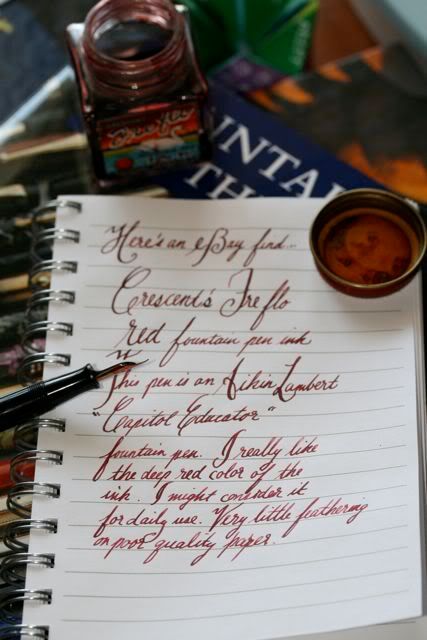 Treflo
UNTAI
TH
Here's an eBay find...
Crescent's Treflo
red fountain pen ink
This pen is an Aikin Lambert
"Capitol Educator"
fountain pen. I really like
the deep red color of the
ink. I might consider it
for daily use. Very little feathering
on poor quality paper.